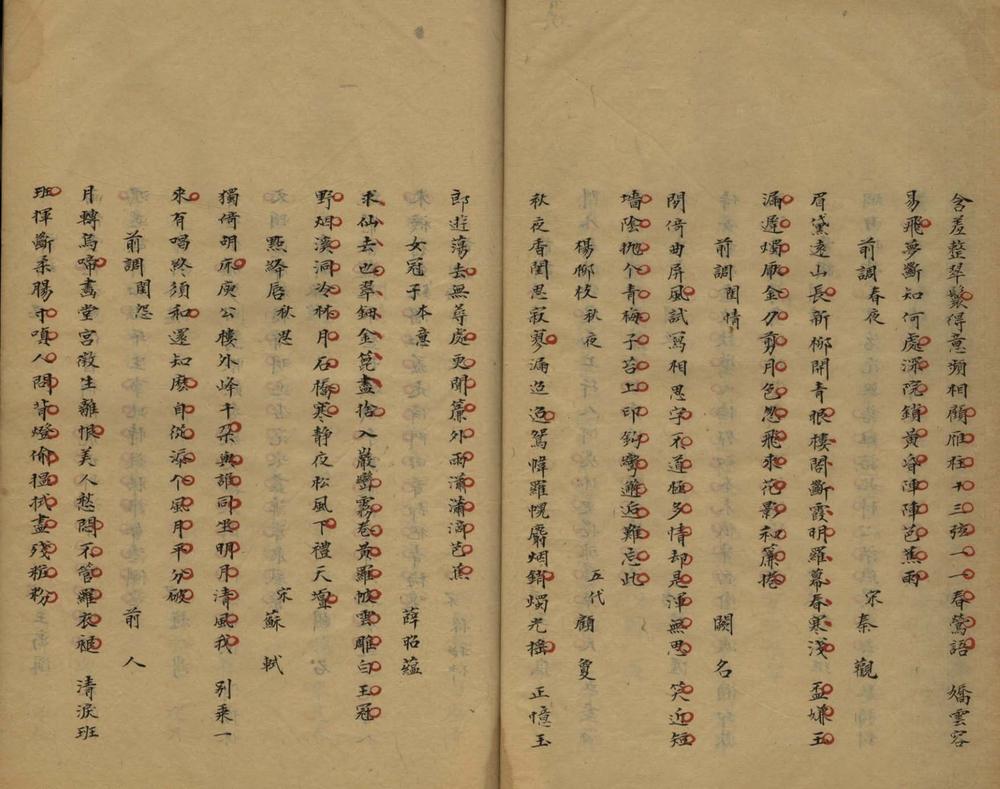 含羞整翠鬟得意頻相顧雁柱十三弦一一春鶯語 嬌雲容
易飛夢斷知何處深院鎖黃昏陣陣芭蕉雨
前調春夜 宋秦觀
眉黛遠山長新柳開青眼樓閣斷霞明羅幕春寒淺 盃嫌玉
漏遲燭厭金刀剪月色忽飛來花影和簾捲
前調閨情 闕名
閒倚曲屏風試寫相思字不道極多情却是渾無思 笑近短
墻陰抛个青梅子苔上印鉤彎邂逅難忘此
楊柳枝秋夜 五代顧敻
秋夜香閨思寂寥漏迢迢鴛幃羅幌麝烟銷燭光搖 正憶玉
郎遊蕩去無尋處更聞簾外雨瀟瀟滴芭蕉
女冠子本意 薛昭蘊
求仙去也翠鈿金篦盡捨入巖巒霧卷黃羅帔雲雕白玉冠
野烟溪洞冷林月石橋寒静夜松風下禮天壇
點絳唇秋思 宋蘇軾
獨倚胡床庾公樓外峰千朶與誰同坐明月清風我 别乘一
來有唱終須和還知麽自從添个風月平分破
前調閨怨 前人
月轉烏啼畵堂宮徵生離恨美人愁悶不管羅衣褪 清淚班
班揮斷柔腸寸嗔人問背燈偷揾拭盡殘粧粉